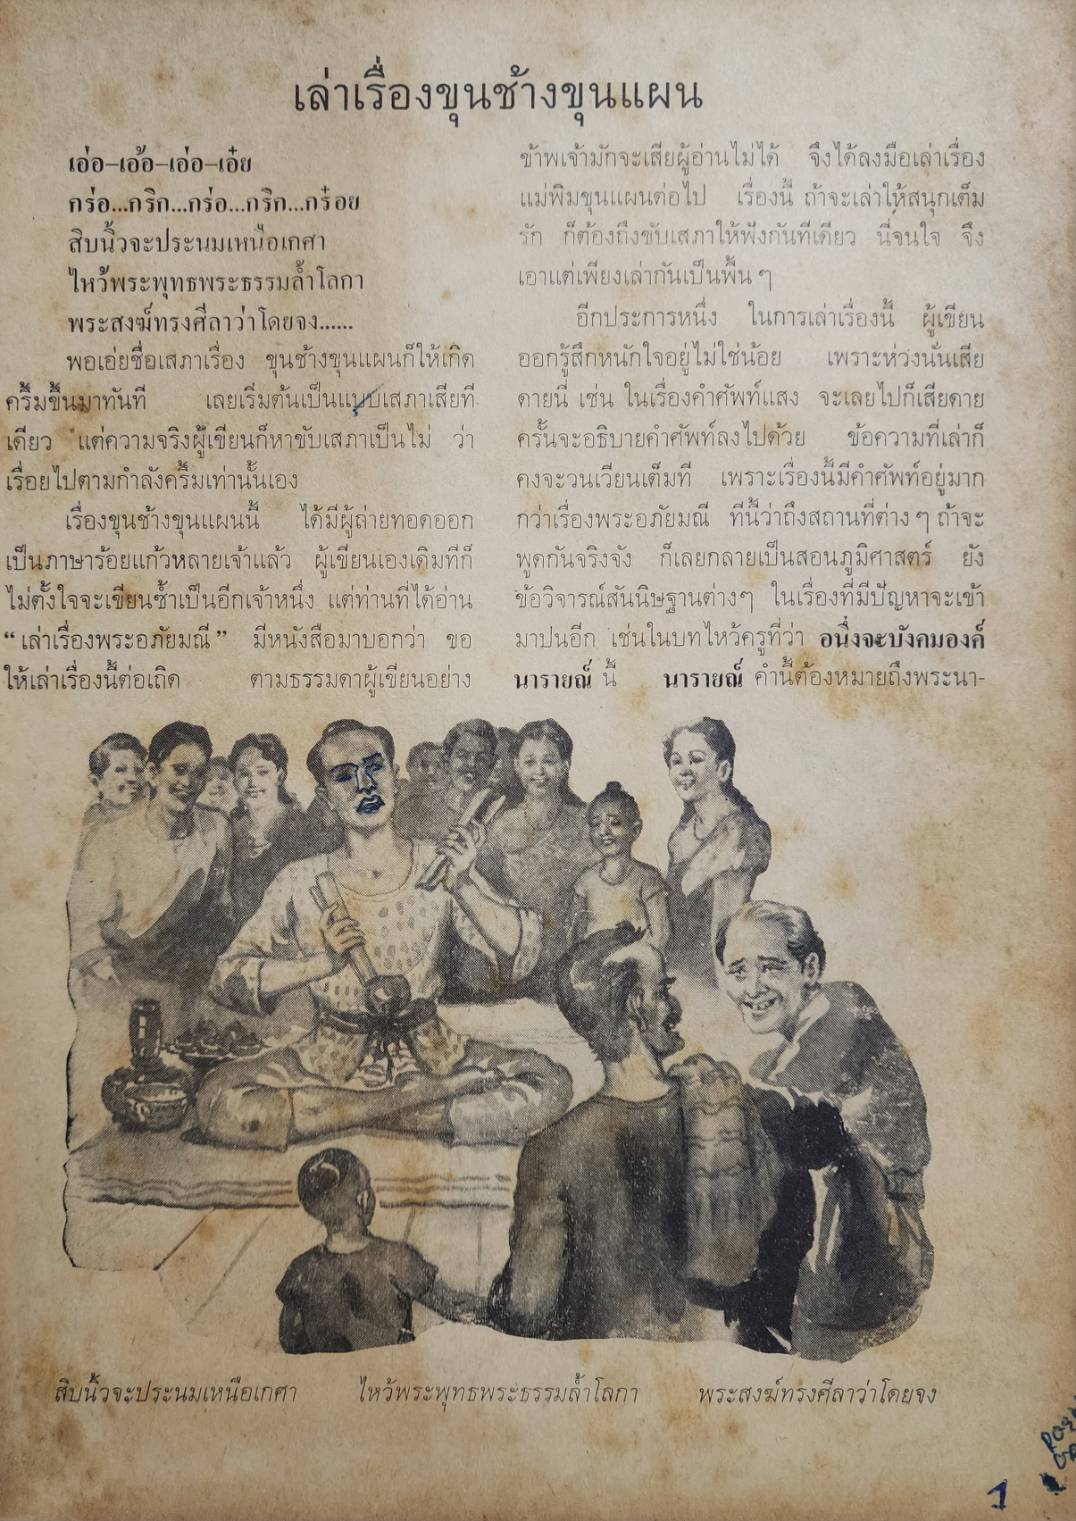 เล่าเรื่องขุนช้างขุนแผน
เอ่อ–เอ้อ–เอ่อ–เอ๋ย
กร่อ...กริก...กร่อ...กริก...กร๋อย
สิบนิ้วจะประนมเหนือเกศา
ไหว้พระพุทธพระธรรมล้ำโลกา
พระสงฆ์ทรงศีลาว่าโดยจง......
พอเอ่ยชื่อเสภาเรื่อง ขุนช้างขุนแผนก็ให้เกิด
ครึ้มขึ้นมาทันที เลยเริ่มต้นเป็นแบบเสภาเสียที
เดียว แต่ความจริงผู้เขียนก็หาขับเสภาเป็นไม่ ว่า
เรื่อยไปตามกำลังครึ้มเท่านั้นเอง
เรื่องขุนช้างขุนแผนนี้ ได้มีผู้ถ่ายทอดออก
เป็นภาษาร้อยแก้วหลายเจ้าแล้ว ผู้เขียนเองเดิมทีก็
ไม่ตั้งใจจะเขียนซ้ำเป็นอีกเจ้าหนึ่ง แต่ท่านที่ได้อ่าน
“เล่าเรื่องพระอภัยมณี” มีหนังสือมาบอกว่า ขอ
ให้เล่าเรื่องนี้ต่อเถิด ตามธรรมดาผู้เขียนอย่าง
ข้าพเจ้ามักจะเสียผู้อ่านไม่ได้ จึงได้ลงมือเล่าเรื่อง
แม่พิมขุนแผนต่อไป เรื่องนี้ ถ้าจะเล่าให้สนุกเต็ม
รัก ก็ต้องถึงขับเสภาให้ฟังกันทีเดียว นี่จนใจ จึง
เอาแต่เพียงเล่ากันเป็นพื้น ๆ
อีกประการหนึ่ง ในการเล่าเรื่องนี้ ผู้เขียน
ออกรู้สึกหนักใจอยู่ไม่ใช่น้อย เพราะห่วงนั่นเสีย
ดายนี่ เช่น ในเรื่องคำศัพท์แสง จะเลยไปก็เสียดาย
ครั้นจะอธิบายคำศัพท์ลงไปด้วย ข้อความที่เล่าก็
คงจะวนเวียนเต็มที เพราะเรื่องนี้มีคำศัพท์อยู่มาก
กว่าเรื่องพระอภัยมณี ทีนี้ว่าถึงสถานที่ต่าง ๆ ถ้าจะ
พูดกันจริงจัง ก็เลยกลายเป็นสอนภูมิศาสตร์ ยัง
ข้อวิจารณ์สันนิษฐานต่างๆ ในเรื่องที่มีปัญหาจะเข้า
มาปนอีก เช่นในบทไหว้ครูที่ว่า อนึ่งจะบังคมองค์
นารายณ์ นี้ นารายณ์ คำนี้ต้องหมายถึงพระนา-
สิบนิ้วจะประนมเหนือเกศา ไหว้พระพุทธพระธรรมล้ำโลกา พระสงฆ์ทรงศีลาว่าโดยจง
1